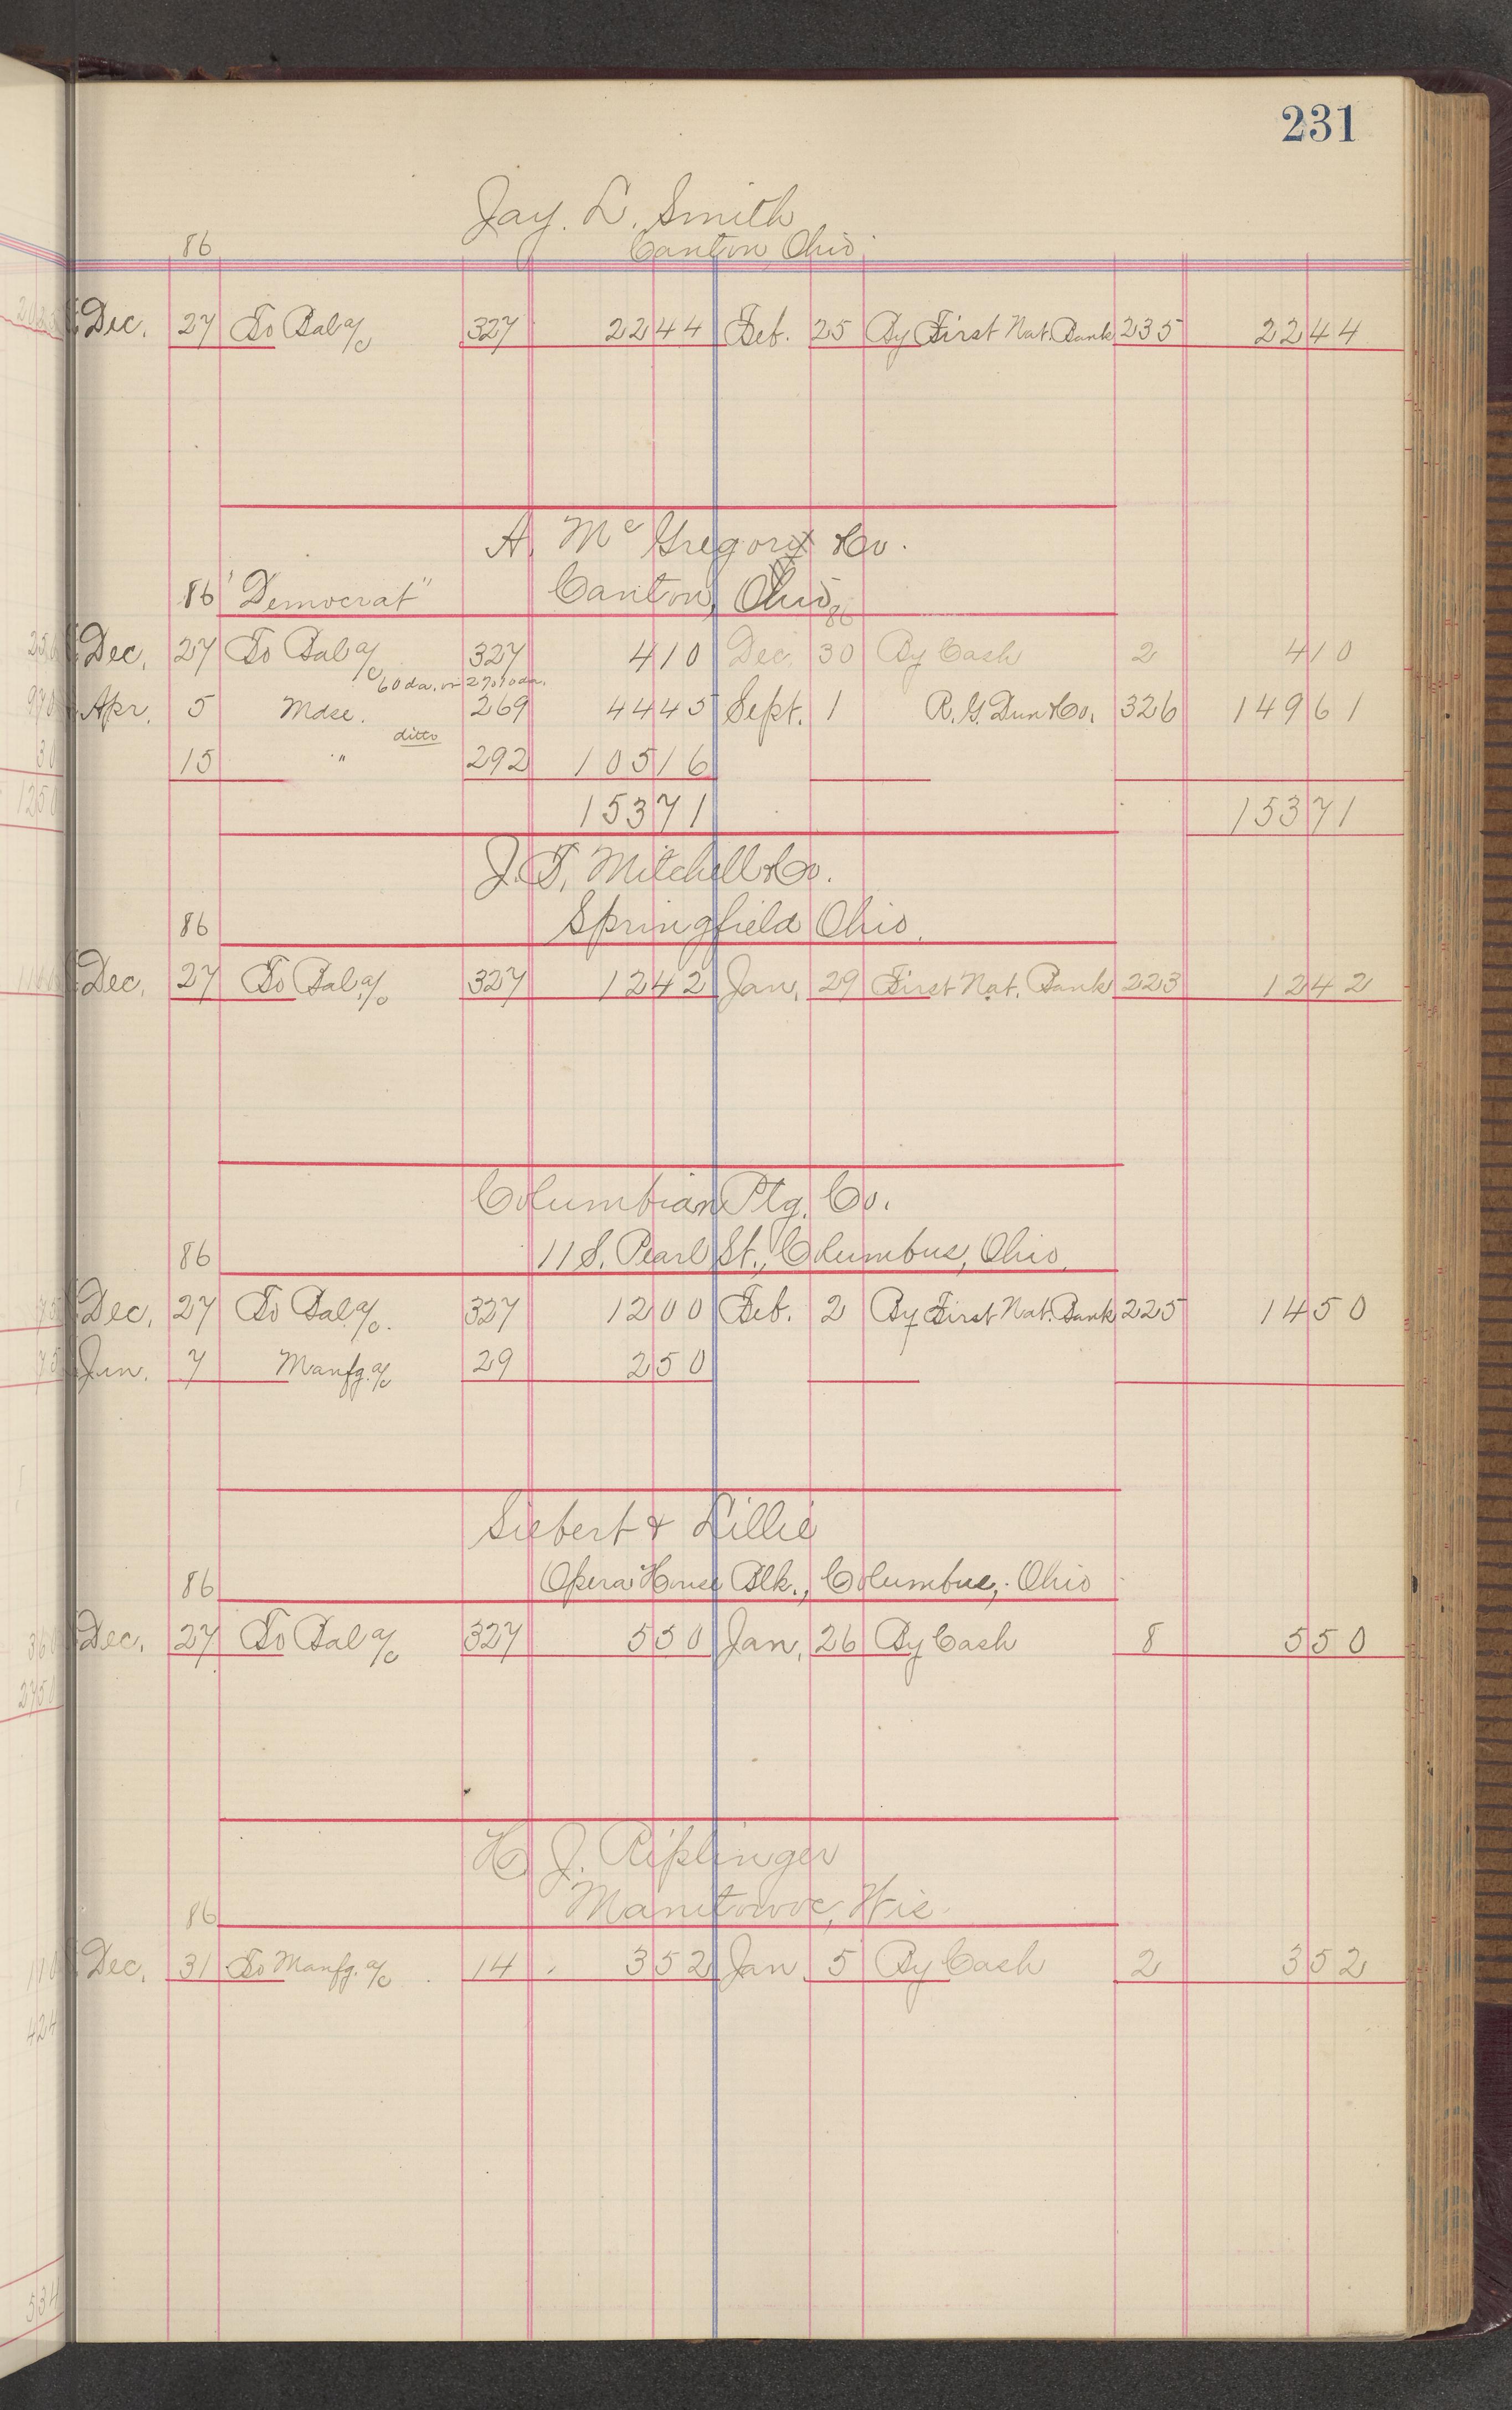 231
Jay. L. Smith
86 Canton, Ohio
Dec. 27 To Bal a/c 327 22 44 Feb. 25 By First Nat. Bank 235 22 44
A. McGregor & Co.
86 "Democrat" Canton, Ohio
86
Dec. 27 To Bal a/c 327 4 10 Dec. 30 By Cash 2 4 10
60 da. or 2% 10 da.
Apr. 5 Mdse. 269 44 45 Sept. 1 R. G. Dun & Co. 326 149 61
ditto
15 " 292 105 16
153 71 153 71
J. T. Mitchell & Co.
86 Springfield Ohio.
Dec. 27 To Bal a/c 327 12 42 Jan. 29 First Nat. Bank 223 12 42
Columbian Ptg. Co.
86 11 S. Pearl St., Columbus, Ohio.
Dec. 27 To Bal a/c. 327 12 00 Feb. 2 By First Nat. Bank 225 14 50
Jan. 7 Manfg. a/c 29 2 50
Siebert & Lillie
86 Opera House Blk., Columbus, Ohio
Dec. 27 To Bal a/c 327 5 50 Jan. 26 By Cash 8 5 50
H. J. Riplinger
86 Manitowoc, Wis.
Dec. 31 To Manfg. a/c 14 3 52 Jan 5 By Cash 2 3 52